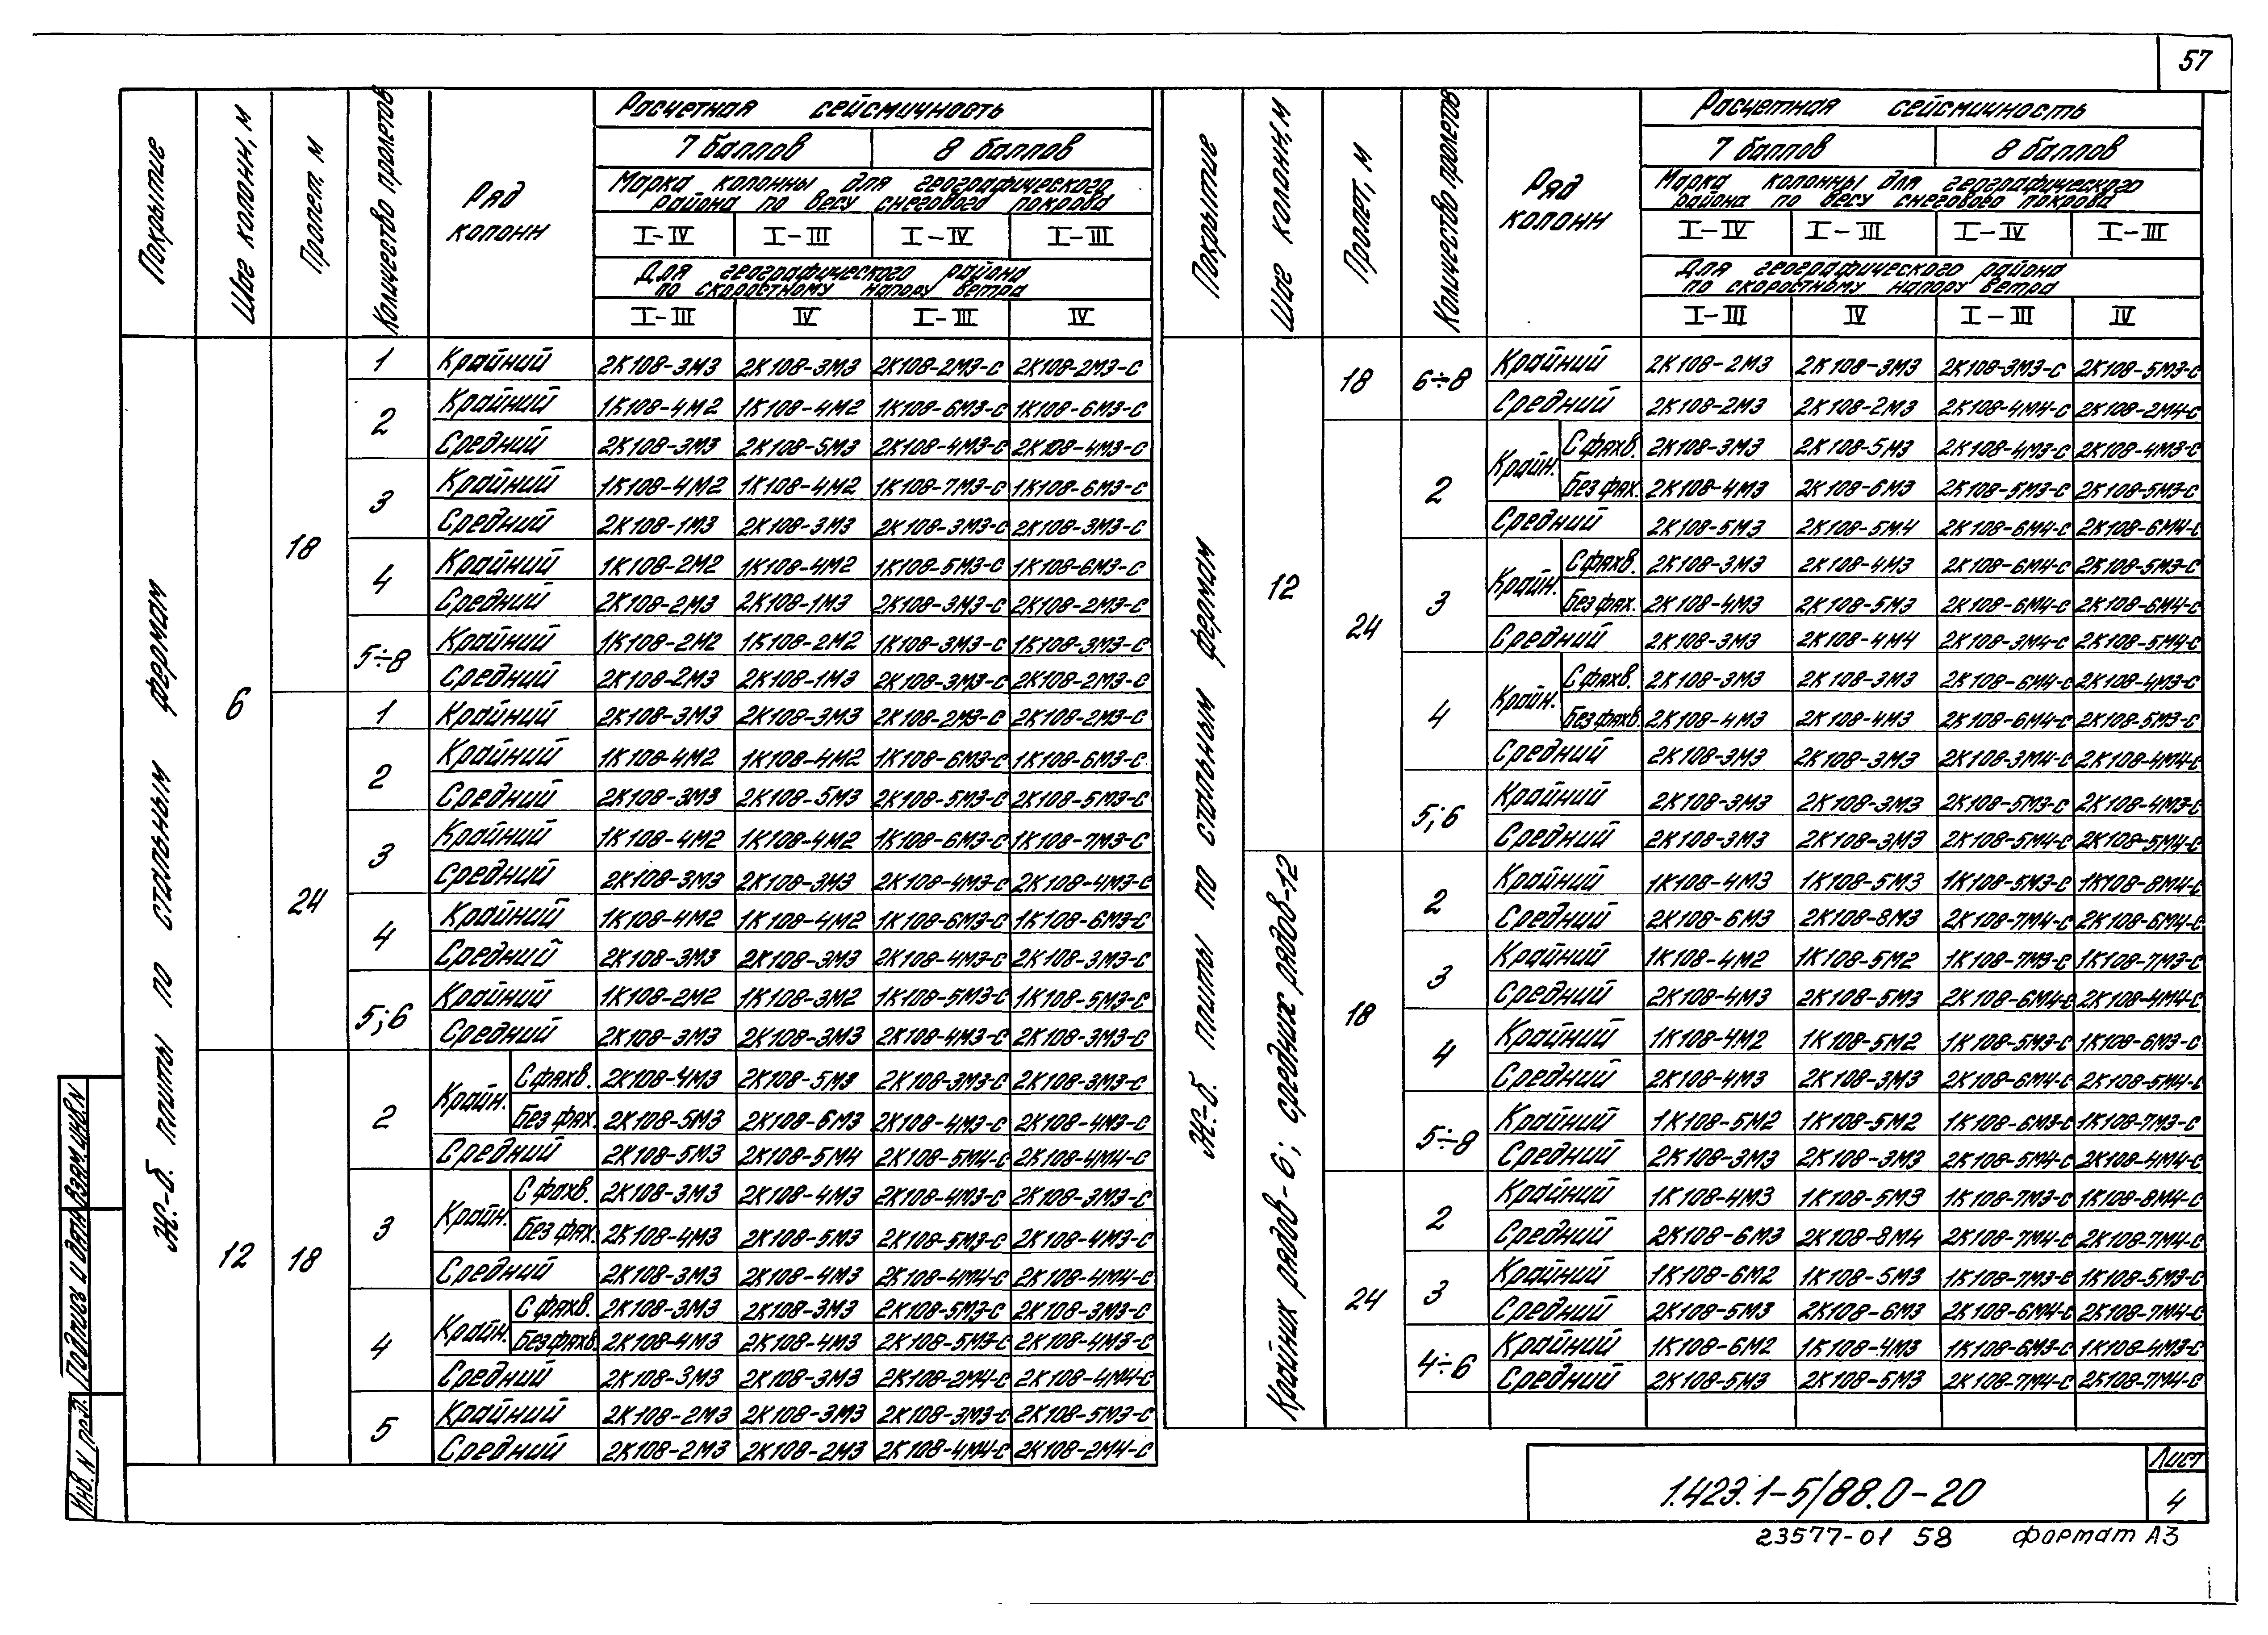 57
Покрытие
Шаг колонн, м
Пролет, м
Количество пролетов
Ряд колонн
Расчетная сейсмичность
7 баллов 8 баллов
Марка колонны для географического
района по весу снегового покрова
I-IV I-III I-IV I-III
Для географического района
по скоростному напору ветра
I-III IV I-III IV
Ж.-б. плиты по стальным фермам
6
18
1 Крайний 2К108-3М3 2К108-3М3 2К108-2М3-С 2К108-2М3-С
2 Крайний 1К108-4М2 1К108-4М2 1К108-6М3-С 1К108-6М3-С
Средний 2К108-3М3 2К108-5М3 2К108-4М3-С 2К108-4М3-С
3 Крайний 1К108-4М2 1К108-4М2 1К108-7М3-С 1К108-6М3-С
Средний 2К108-1М3 2К108-3М3 2К108-3М3-С 2К108-3М3-С
4 Крайний 1К108-2М2 1К108-4М2 1К108-5М3-С 1К108-6М3-С
Средний 2К108-2М3 2К108-1М3 2К108-3М3-С 2К108-2М3-С
5÷8 Крайний 1К108-2М2 1К108-2М2 1К108-3М3-С 1К108-3М3-С
Средний 2К108-2М3 2К108-1М3 2К108-3М3-С 2К108-2М3-С
24
1 Крайний 2К108-3М3 2К108-3М3 2К108-2М3-С 2К108-2М3-С
2 Крайний 1К108-4М2 1К108-4М2 1К108-6М3-С 1К108-6М3-С
Средний 2К108-3М3 2К108-5М3 2К108-5М3-С 2К108-5М3-С
3 Крайний 1К108-4М2 1К108-4М2 1К108-6М3-С 1К108-7М3-С
Средний 2К108-3М3 2К108-3М3 2К108-4М3-С 2К108-4М3-С
4 Крайний 1К108-4М2 1К108-4М2 1К108-6М3-С 1К108-6М3-С
Средний 2К108-3М3 2К108-3М3 2К108-4М3-С 2К108-3М3-С
5;6 Крайний 1К108-2М2 1К108-3М2 1К108-5М3-С 1К108-5М3-С
Средний 2К108-3М3 2К108-3М3 2К108-4М3-С 2К108-3М3-С
12
18
2 Крайн. С фахв. 2К108-4М3 2К108-5М3 2К108-3М3-С 2К108-3М3-С
Без фах. 2К108-5М3 2К108-6М3 2К108-4М3-С 2К108-4М3-С
Средний 2К108-5М3 2К108-5М4 2К108-5М4-С 2К108-4М4-С
3 Крайн. С фахв. 2К108-3М3 2К108-4М3 2К108-4М3-С 2К108-3М3-С
Без фах. 2К108-4М3 2К108-5М3 2К108-5М3-С 2К108-4М3-С
Средний 2К108-3М3 2К108-4М3 2К108-4М4-С 2К108-4М4-С
4 Крайн. С фахв. 2К108-3М3 2К108-3М3 2К108-5М3-С 2К108-3М3-С
Без фахв. 2К108-4М3 2К108-4М3 2К108-5М3-С 2К108-4М3-С
Средний 2К108-3М3 2К108-3М3 2К108-2М4-С 2К108-4М4-С
5 Крайний 2К108-2М3 2К108-3М3 2К108-3М3-С 2К108-5М3-С
Средний 2К108-2М3 2К108-2М3 2К108-4М4-С 2К108-2М4-С
Покрытие
Шаг колонн, м
Пролет, м
Количество пролетов
Ряд колонн
Расчетная сейсмичность
7 баллов 8 баллов
Марка колонны для географического
района по весу снегового покрова
I-IV I-III I-IV I-III
Для географического района
по скоростному напору ветра
I-III IV I-III IV
Ж.-б. плиты по стальным фермам
12
18
6÷8 Крайний 2К108-2М3 2К108-3М3 2К108-3М3-С 2К108-5М3-С
Средний 2К108-2М3 2К108-2М3 2К108-4М4-С 2К108-2М4-С
24
2 Крайн. С фахв. 2К108-3М3 2К108-5М3 2К108-4М3-С 2К108-4М3-С
Без фах. 2К108-4М3 2К108-6М3 2К108-5М3-С 2К108-5М3-С
Средний 2К108-5М3 2К108-5М4 2К108-6М4-С 2К108-6М4-С
3 Крайн. С фахв. 2К108-3М3 2К108-4М3 2К108-6М4-С 2К108-5М3-С
Без фах. 2К108-4М3 2К108-5М3 2К108-6М4-С 2К108-6М4-С
Средний 2К108-3М3 2К108-4М4 2К108-3М4-С 2К108-5М4-С
4 Крайн. С фахв. 2К108-3М3 2К108-3М3 2К108-6М4-С 2К108-4М3-С
Без фахв. 2К108-4М3 2К108-4М3 2К108-6М4-С 2К108-5М3-С
Средний 2К108-3М3 2К108-3М3 2К108-3М4-С 2К108-4М4-С
5;6 Крайний 2К108-3М3 2К108-3М3 2К108-5М3-С 2К108-4М3-С
Средний 2К108-3М3 2К108-3М3 2К108-5М4-С 2К108-5М4-С
Крайних рядов-6; средних рядов-12
18
2 Крайний 1К108-4М3 1К108-5М3 1К108-5М3-С 1К108-8М4-С
Средний 2К108-6М3 2К108-8М3 2К108-7М4-С 2К108-6М4-С
3 Крайний 1К108-4М2 1К108-5М2 1К108-7М3-С 1К108-7М3-С
Средний 2К108-4М3 2К108-5М3 2К108-6М4-С 2К108-4М4-С
4 Крайний 1К108-4М2 1К108-5М2 1К108-5М3-С 1К108-6М3-С
Средний 2К108-4М3 2К108-3М3 2К108-6М4-С 2К108-5М4-С
5÷8 Крайний 1К108-5М2 1К108-5М2 1К108-6М3-С 1К108-7М3-С
Средний 2К108-3М3 2К108-3М3 2К108-5М4-С 2К108-4М4-С
24
2 Крайний 1К108-4М3 1К108-5М3 1К108-7М3-С 1К108-8М4-С
Средний 2К108-6М3 2К108-8М4 2К108-7М4-С 2К108-7М4-С
3 Крайний 1К108-6М2 1К108-5М3 1К108-7М3-С 1К108-5М3-С
Средний 2К108-5М3 2К108-6М3 2К108-6М4-С 2К108-7М4-С
4÷6 Крайний 1К108-6М2 1К108-4М3 1К108-6М3-С 1К108-4М3-С
Средний 2К108-5М3 2К108-5М3 2К108-7М4-С 2К108-7М4-С
Взам. инв. N
Подпись и дата
Инв. N подл.
1.423.1-5/88.0-20
Лист
4
23577-01 58 формат А3